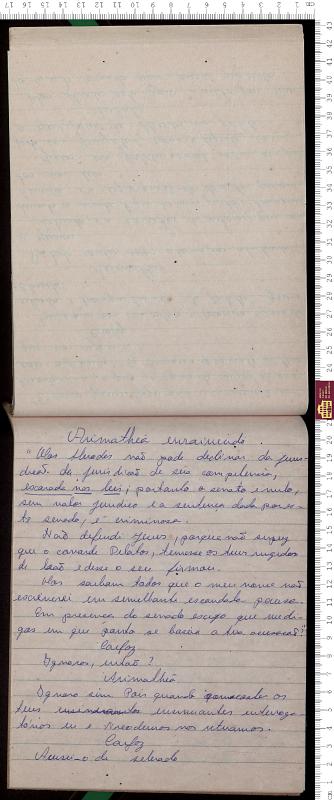 Arimathéa enraivecido.
"Mas Herodes não pode declinar da juris-
dicão da jurisdicão de sua competencia,
escarada nas leis; portanto o senato é nulo,
sem valor juridico e a sentença dada por es-
te senado, é criminosa.
Não defendi Jesus, porque não supuz
que o covarde Pilatos, temesse os teus rugidos
de leão e desse o seu
Mas saibam todos que o meu nome não
escreverei em semelhante escandalo
Em presença do senado exijo que me di-
gas em que ponto se baseia a tua acusação?"
Caifaz
Ignoras, então?
Arimathéa
Ignoro sim Pois quando começaste os
teus enunciantes interroga-
tórios eu e Nicodemos nos retiramos.
Caifaz
Acuso-o de